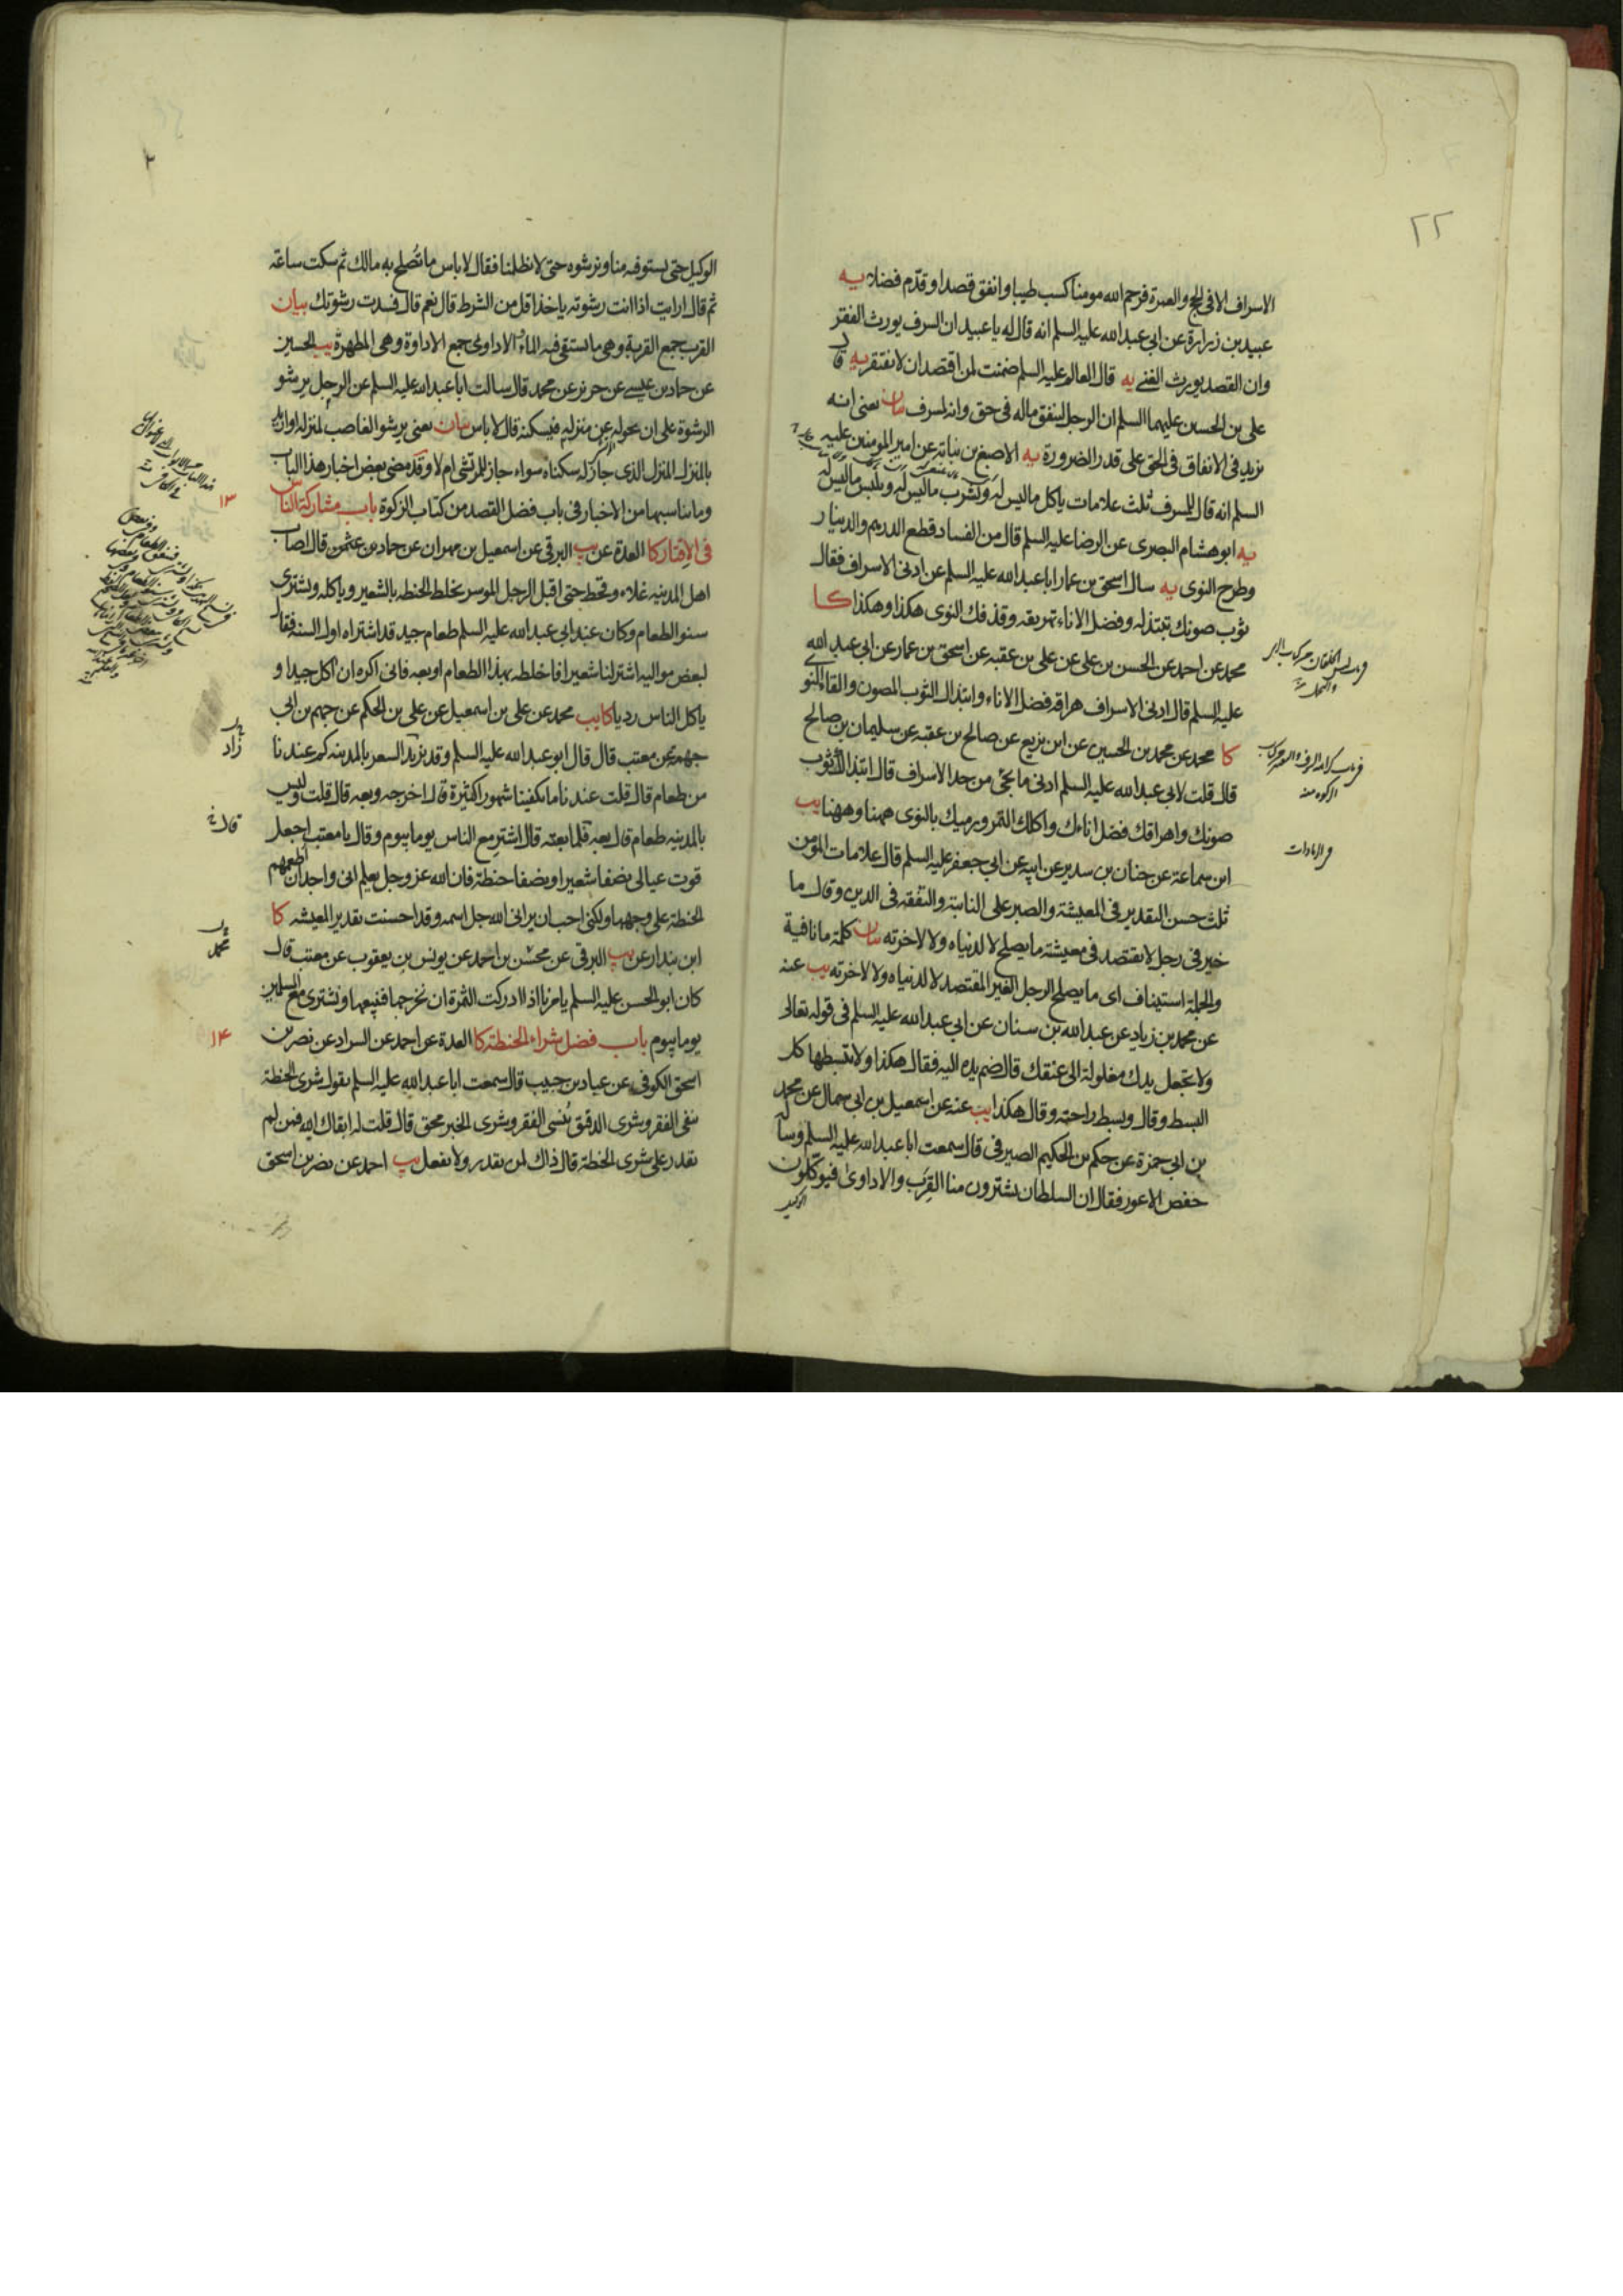 ٢٢
الاسراف الا فى الحج والعمرة فرحم الله مومنا كسب طيبا وانفق قصدا وقدّم فضلا يه
عبيد بن زرارة عن ابى عبدالله عليه السلم انه قال له يا عبيد ان السرف يورث الفقر
وان القصد يورث الغنى يه قال العالم عليه السلم ضمنت لمن اقتصد ان لا يفتقر يه قال
على بن الحسين عليهما السلم ان الرجل لينفق ماله فى حق وانه لمسرف بيان يعنى انه
يزيد فى الانفاق فى الحق على قدر الضرورة يه الاصبغ بن نباته عن امير المومنين عليه
السلم انه قال للمسرف ثلث علامات ياكل ما ليس له ويشرب ما ليس له ويلبس ما ليس له
يه ابو هشام البصرى عن الرضا عليه السلم قال من الفساد قطع الدرهم والدينار
وطرح النوى يه سال اسحق بن عمار ابا عبدالله عليه السلم عن ادنى الاسراف فقال
ثوب صونك تبتذله وفضل الاناء تهريقه وقذفك النوى هكذا وهكذا كا
محمد عن احمد عن الحسن بن على عن على بن عقبه عن اسحق بن عمار عن ابى عبدالله
عليه السلم قال ادنى الاسراف هراقة فضل الاناء وابتذال الثوب المصون والقاء النوى
كا محمد عن محمد بن الحسين عن ابن بزيع عن صالح بن عقبه عن سليمان بن صالح
قال قلت لابى عبدالله عليه السلم ادنى ما يجئ من حد الاسراف قال ابتذالك ثوب
صونك واهراقك فضل اناءك واكلك التمر ورميك بالنوى ههنا وههنا يب
ابن سماعة عن حنان بن سدير عن ابيه عن ابى جعفر عليه السلم قال علامات المؤمن
ثلث حسن التقدير فى المعيشة والصبر على النائبة والتفقه فى الدين وقال ما
خير فى رجل لا يقتصد فى معيشته ما يصلح لا لدنياه ولا لاخرته بيان كلمة ما نافية
والجملة استيناف اى ما يصلح الرجل الغير المقتصد لا لدنياه ولا لاخرته يب عنه
عن محمد بن زياد عن عبدالله بن سنان عن ابى عبدالله عليه السلم فى قوله تعالى
ولا تجعل يدك مغلولة الى عنقك قال ضم يده اليه فقال هكذا ولا تبسطها كل
البسط وقال وبسط راحته وقال هكذا يب عنه عن اسمعيل بن ابى سمال عن محمد
بن ابى حمزة عن حكم بن الحكيم الصيرفى قال سمعت ابا عبدالله عليه السلم وساله
حفص الاعور فقال ان السلطان يشترون منا القرب والاداوى فيوكلون
الوكيل
والتجمل منه
الزكوة منه
فى الزيادات
٢
الوكيل حتى يستوفيه منا ونرشوه حتى لا يظلمنا فقال لا باس ما تصلح به مالك ثم سكت ساعة
ثم قال ارايت اذا انت رشوته ياخذ اقل من الشرط قال نعم قال فسدت رشوتك بيان
القرب جمع القربة وهى ما يستقى فيه الماء والاداوى جمع الاداوة وهى المطهرة يب الحسين
عن حماد بن عيسى عن حريز عن محمد قال سالت ابا عبدالله عليه السلم عن الرجل يرشو
الرشوة على ان يحوله عن منزله فيسكنه قال لا باس بيان يعنى يرشو الغاصب لمنزله او اراد
بالمنزل المنزل الذى جاز له سكناه سواء جاز للمرتشى ام لا وقد مضى بعض اخبار هذا الباب
وما يناسبها من الاخبار فى باب فضل القصد من كتاب الزكوة باب مشاركة الناس
فى الاقتار كا العدة عن يب البرقى عن اسمعيل بن مهران عن حماد بن عثمن قال اصاب
اهل المدينه غلاء وقحط حتى اقبل الرجل الموسر يخلط الحنطه بالشعير وياكله ويشترى
ببعض الطعام وكان عند ابى عبدالله عليه السلم طعام جيد قد اشتراه اول السنه فقال
لبعض مواليه اشتر لنا شعيرا فاخلطه بهذا الطعام او بعه فانى اكره ان اكل جيدا و
ياكل الناس رديا كا يب محمد عن على بن اسمعيل عن على بن الحكم عن جهم بن ابى
جهمه عن معتب قال قال ابو عبدالله عليه السلم وقد يزيد السعر بالمدينه كم عندنا
من طعام قال قلت عندنا ما يكفينا شهورا كثيرة قال اخرجه وبعه قال قلت وليس
بالمدينه طعام قال بعه فلما بعته قال اشتر مع الناس يوما بيوم وقال يا معتب اجعل
قوت عيالى نصفا شعيرا ونصفا حنطة فان الله عز وجل يعلم انى واجد ان اطعمهم
الحنطة على وجهها ولكنى احب ان يرانى الله جل اسمه وقد احسنت تقدير المعيشه كا
ابن بندار عن يب البرقى عن محسن بن احمد عن يونس بن يعقوب عن معتب قال
كان ابو الحسن عليه السلم يامرنا اذا ادركت الثمرة ان نخرجها فنبيعها ونشترى مع المسلمين
يوما بيوم باب فضل شراء الحنطة كا العدة عن احمد عن السراد عن نصر بن
اسحق الكوفى عن عباد بن حبيب قال سمعت ابا عبدالله عليه السلم يقول شرى الحنطة
ينفى الفقر وشرى الدقيق ينسى الفقر وشرى الخبز محق قال قلت له ابقاك الله فمن لم
يقدر على شرى الحنطة قال ذاك لمن يقدر ولا يفعل يب احمد عن نصر بن اسحق
١٣
زاد
قال
محمد
١۴